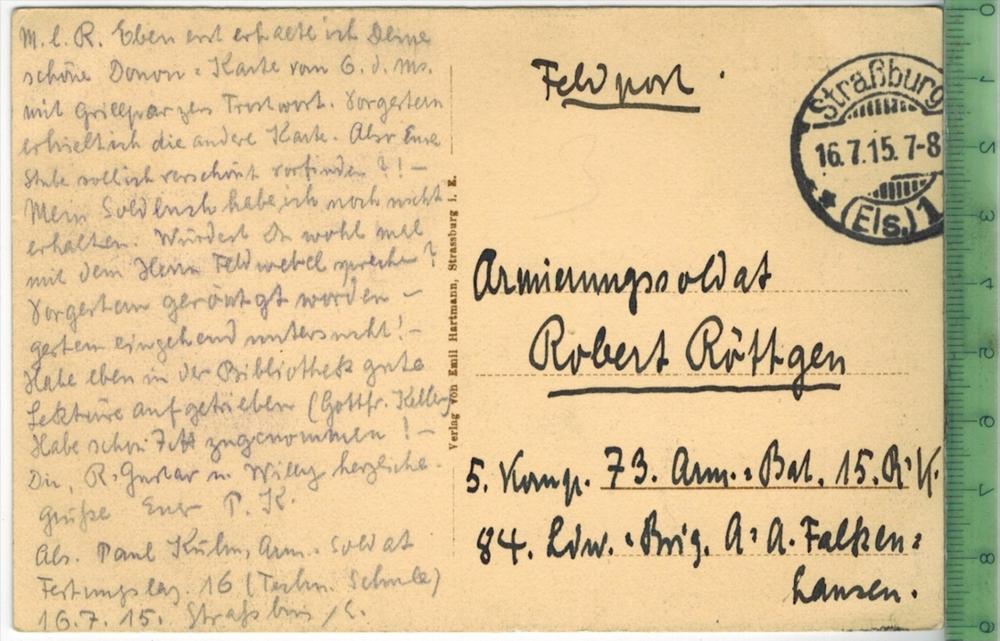 M. l. R. Eben erst erhalte ich Deine
schöne Donon-Karte vom 6. d. Ms.
mit Grillparzers Trostwort. Vorgestern
erhielt ich die andere Karte. Also Eure
Stube soll ich verschönt vorfinden?! –
Mein Soldbuch habe ich noch nicht
erhalten. Würdest Du wohl mal
mit dem Herrn Feldwebel sprechen?
Vorgestern geröntgt worden –
gestern eingehend untersucht! –
Habe eben in der Bibliothek gute
Lektüre aufgetrieben (Gottfr. Keller)
Habe schon 7 ℔ zugenommen! –
Dir, R. Gustav u. Willy herzliche
Grüße Euer P. K.
Abs. Paul Kuhn, Arm.-Soldat
Festungslaz. 16 (Techn. Schule)
16.7.15. Straßburg /E.
Verlag von Emil Hartmann, Strassburg i. E.
Feldpost
Straßburg
16.7.15. 7-8
(Els.) 1
Armierungssoldat
Robert Röttgen
5. Komp. 73. Arm.-Bat. 15. R.K.
84. Ldw.-Brig. A. A. Falken-
hausen.
0
1
2
3
4
5
6
7
8
9